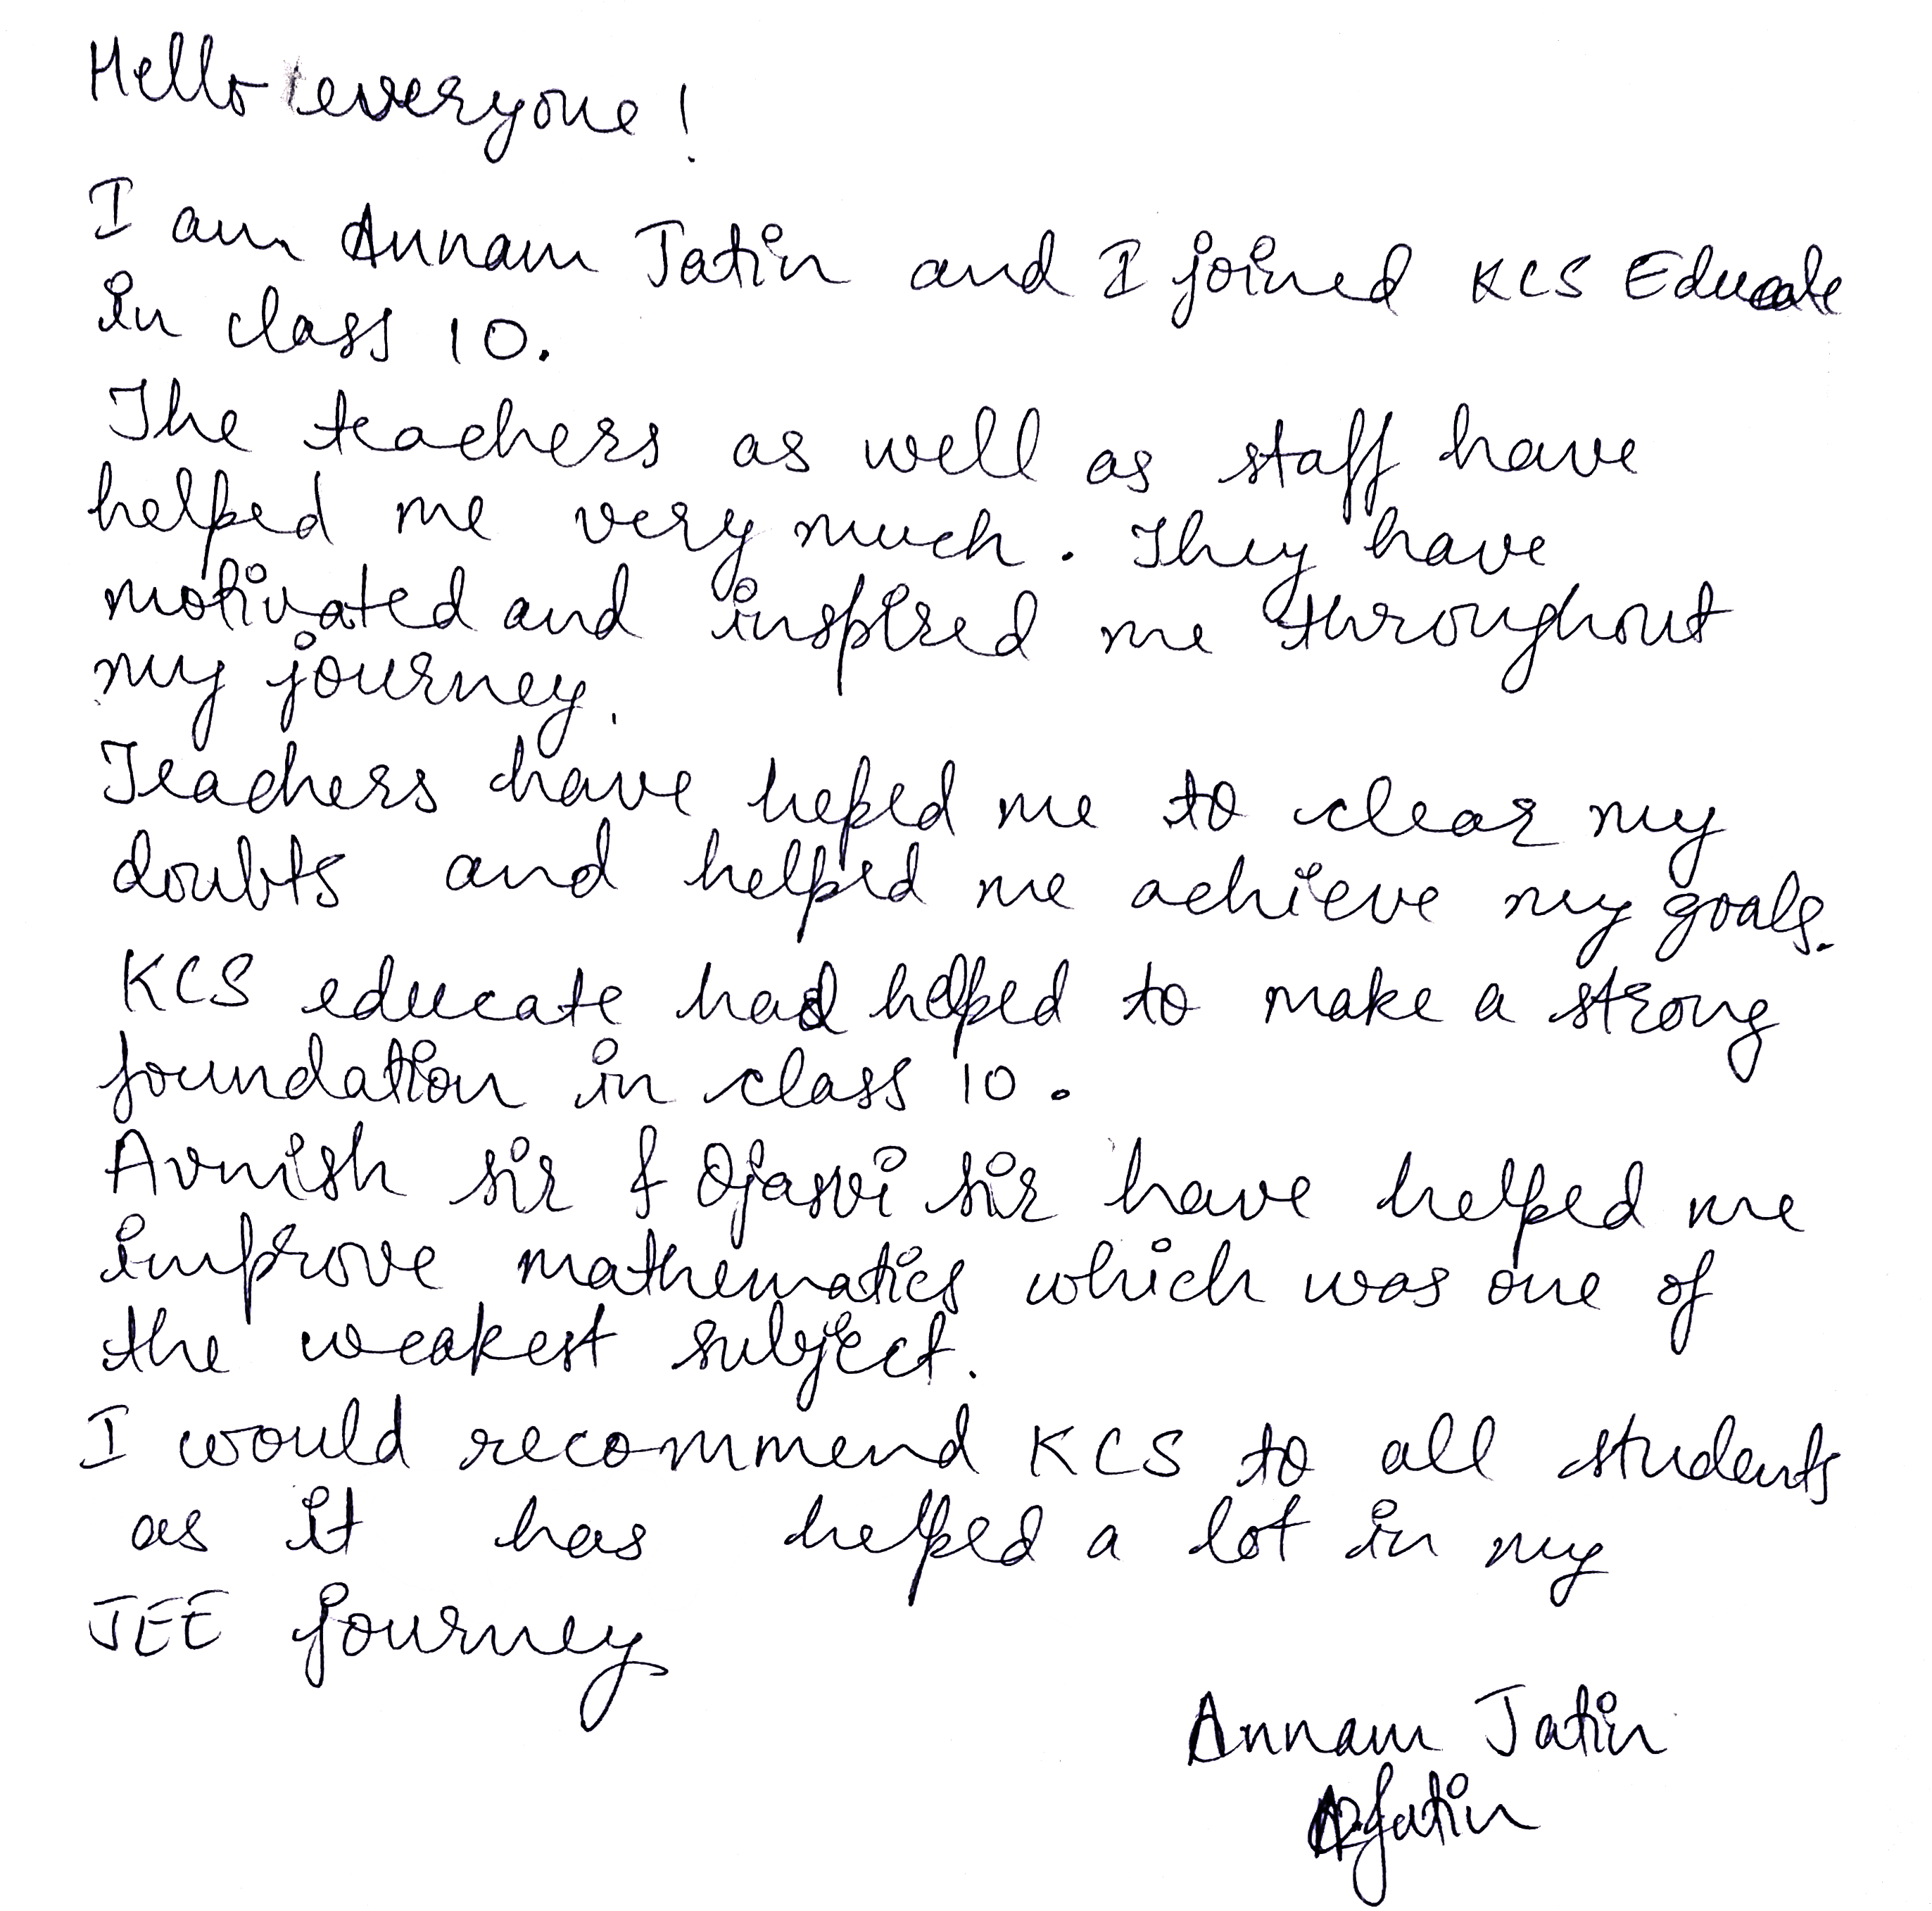 Hello everyone!
I am Annam Jatin and I joined KCS Educate
in class 10.
The teachers as well as staff have
helped me very much. They have
motivated and inspired me throughout
my journey.
Teachers have heped me to clear my
doubts and helped me achieve my goals.
KCS educate had helped to make a strong
foundation in class 10.
Avnish sir & Ojasvi sir have helped me
improve mathematics which was one of
the weakest subject.
I would recommend KCS to all students
as it has helped a lot in my
JEE journey
Annam Jatin
Jatin